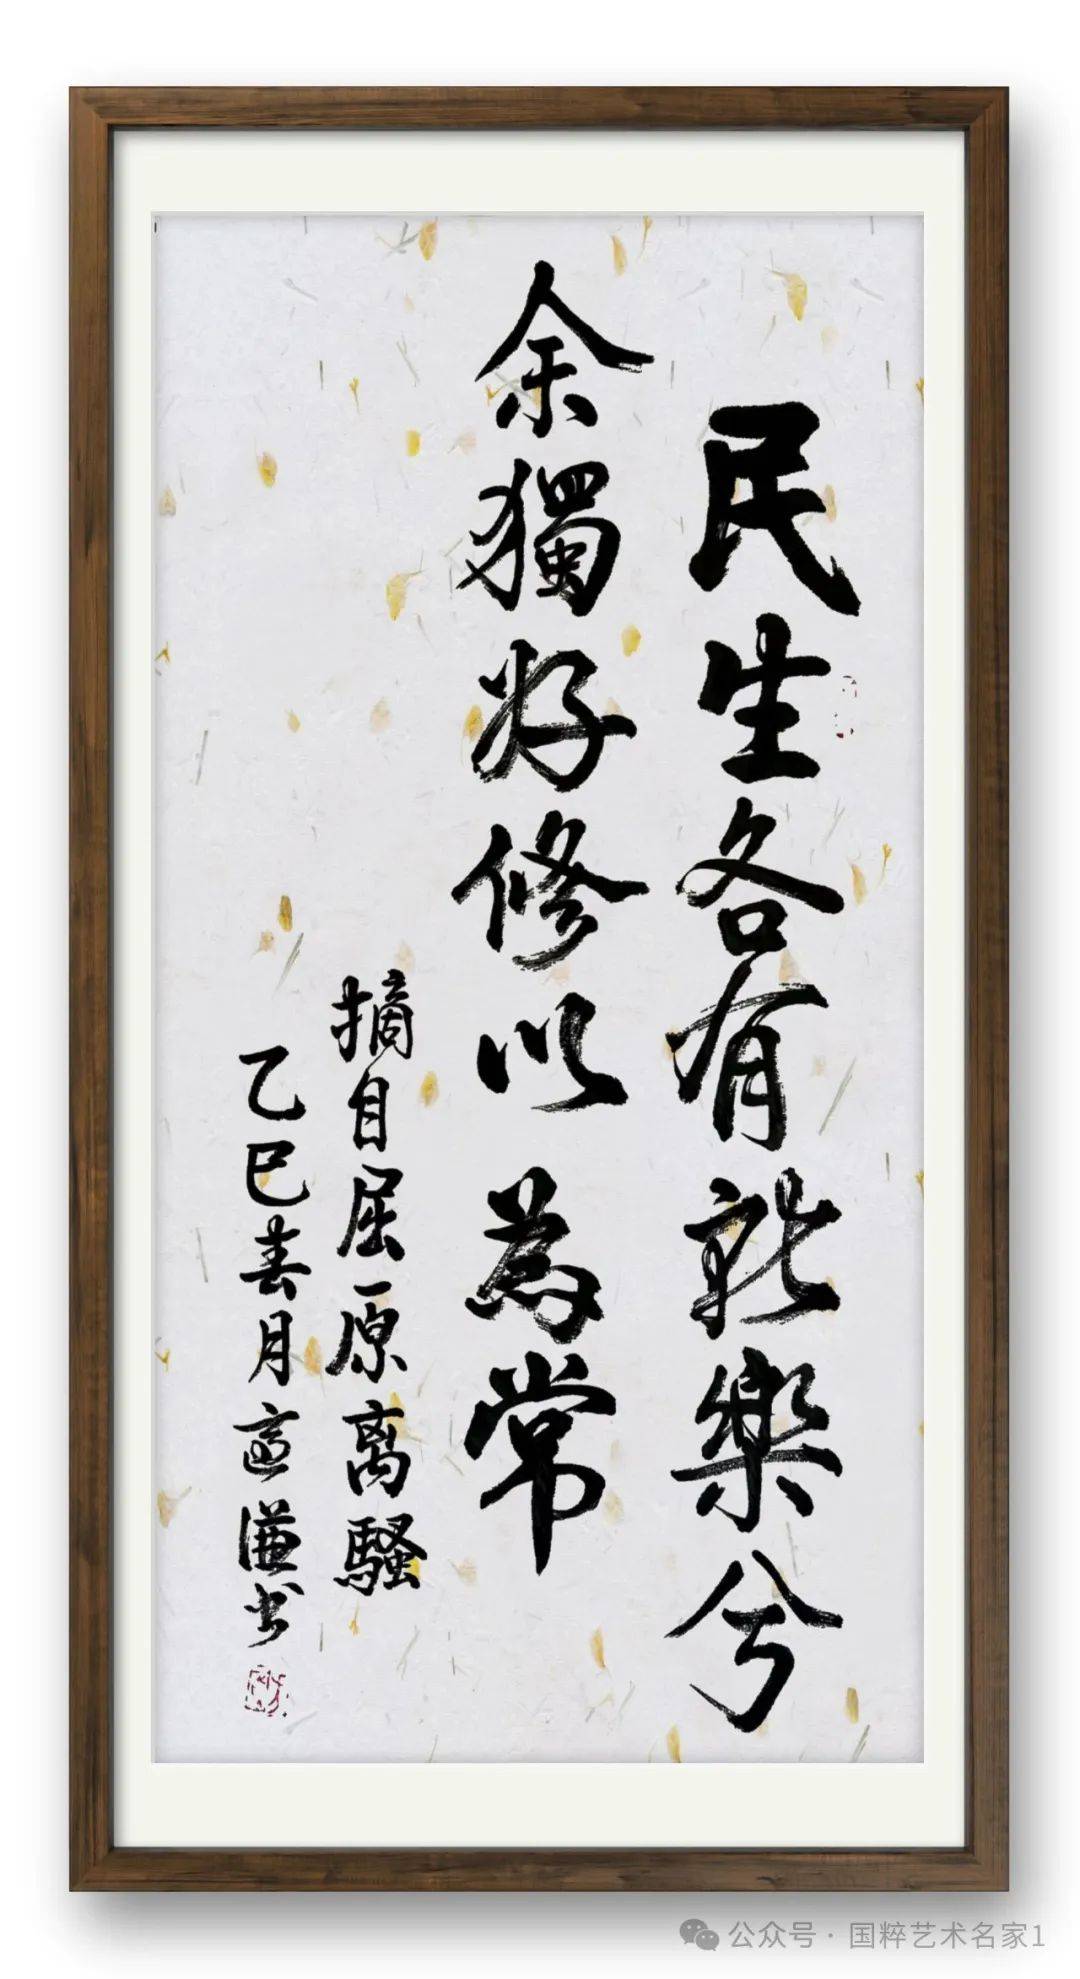 民生各有所樂兮
余獨好修以為常
摘自屈原离騷
乙巳春月
謙书
公众号·国粹艺术名家1